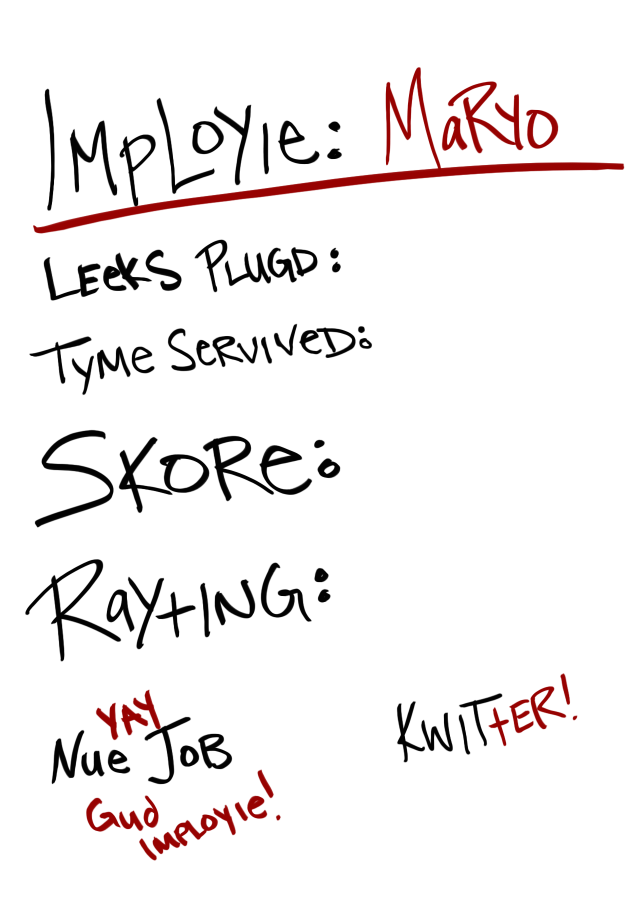 IMPLOYIE: MARYO
LEEKS PLUGD:
TYME SERVIVED:
SKORE:
RAYTING:
YAY
NUE JOB
GUD
IMPLOYIE!
KWITTER!